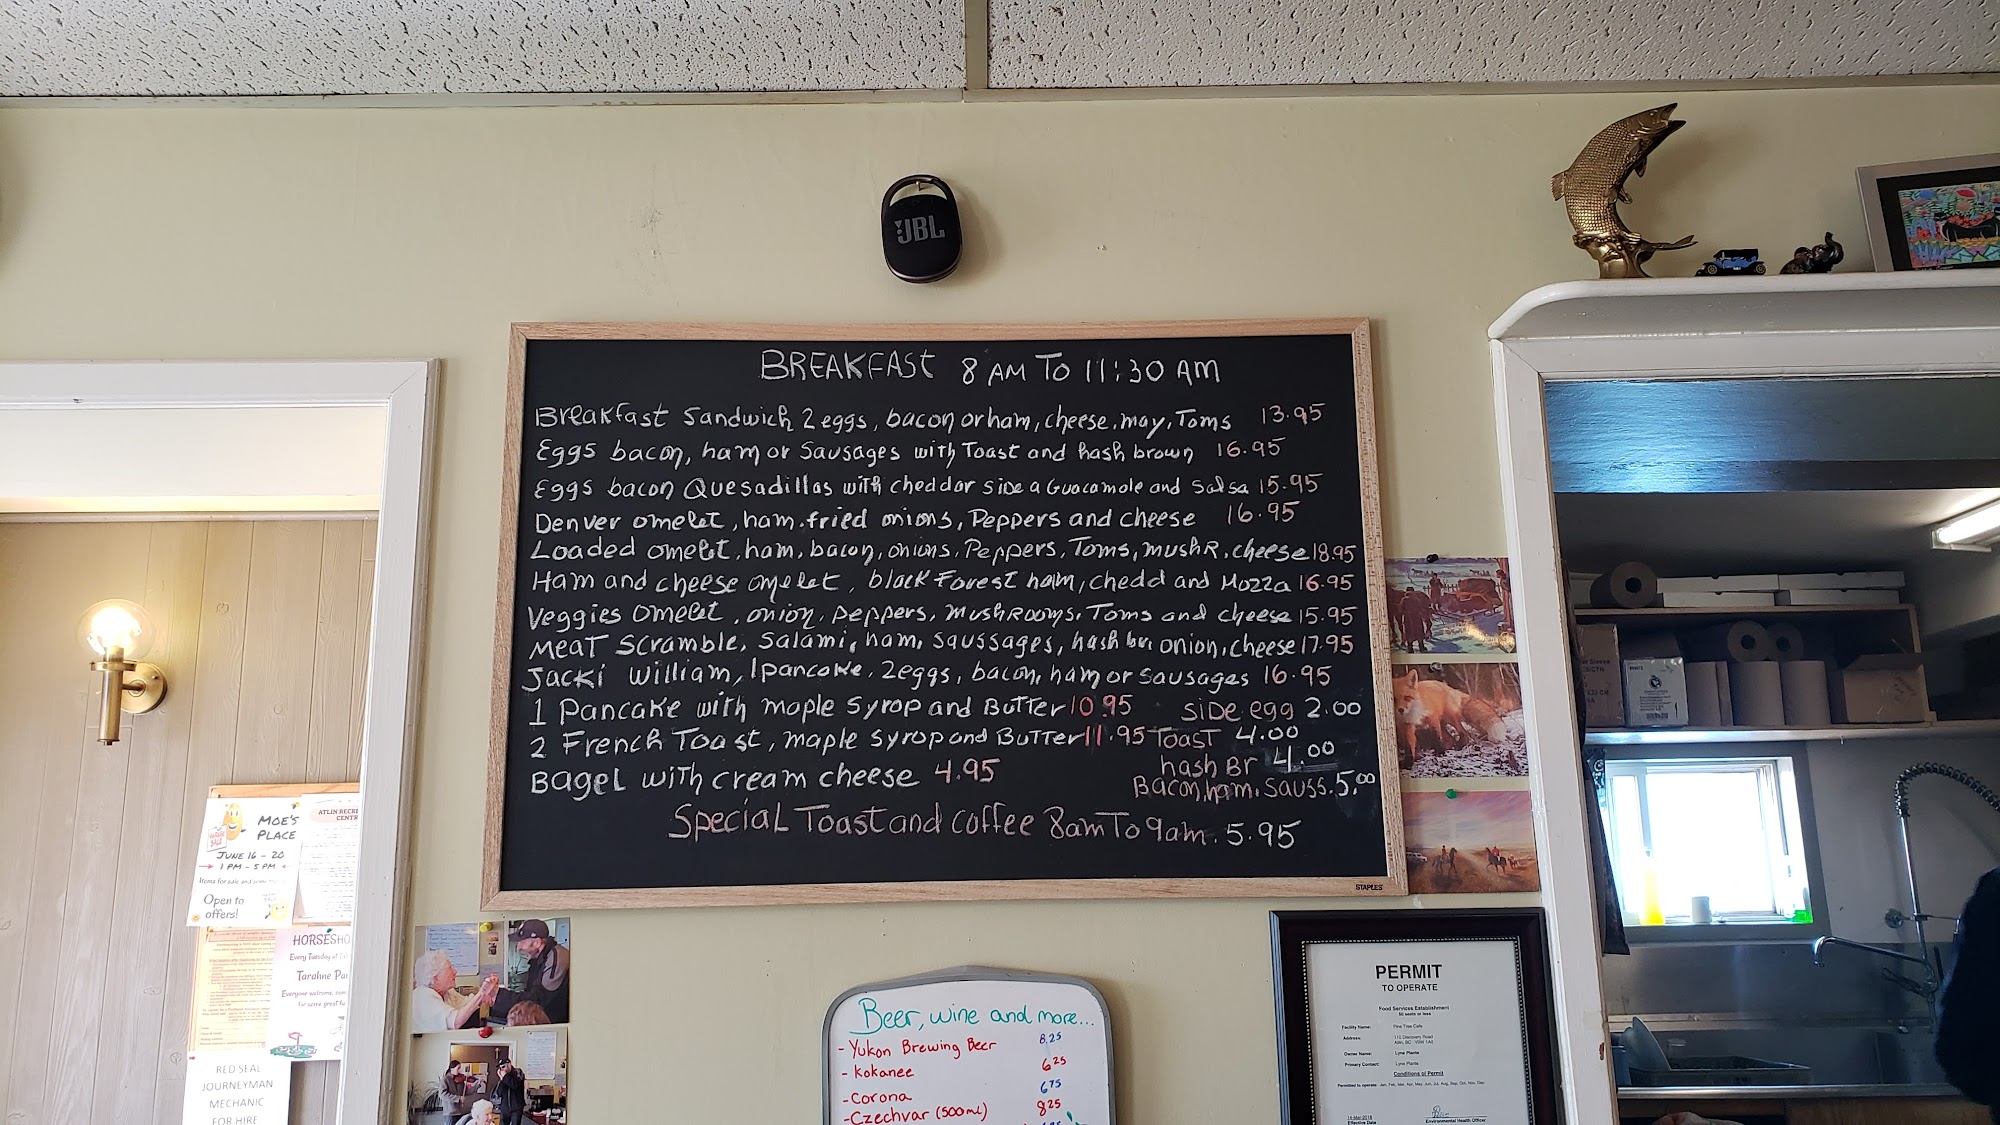 JBL
BREAKFAST 8 AM TO 11:30 AM
Breakfast Sandwich 2 eggs, bacon or ham, cheese, may, Toms 13.95
Eggs bacon, ham or Sausages with Toast and hash brown 16.95
Eggs bacon Quesadillas with cheddar side a Guacamole and Salsa 15.95
Denver omelet, ham, fried onions, Peppers and cheese 16.95
Loaded omelet, ham, bacon, onions, Peppers, Toms, mushR, cheese 18.95
Ham and cheese omelet, black Forest ham, chedd and Mozza 16.95
Veggies omelet, onion, peppers, mushRooms, Toms and cheese 15.95
Meat Scramble, Salami, ham, saussages, hash br, onion, cheese 17.95
Jacki william, 1 pancake, 2 eggs, bacon, ham or Sausages 16.95
1 Pancake with maple Syrop and Butter 10.95 side egg 2.00
2 French Toast, maple Syrop and Butter 11.95 Toast 4.00
hash Br 4.00
Bagel with cream cheese 4.95 Bacon, ham, Sauss. 5.00
Special Toast and coffee 8am To 9am. 5.95
STAPLES
MOE'S
PLACE
JUNE 16 - 20
1 PM - 5 PM
Items for sale and
Open to
offers!
ATLIN RECRE
CENTR
HORSESHO
Every Tuesday at
Tarahne Pa
Everyone welcome,
for some great
RED SEAL
JOURNEYMAN
MECHANIC
FOR HIRE
Beer, wine and more...
- Yukon Brewing Beer 8.25
- Kokanee 6.25
6.75
- Corona
- Czechvar (500ml) 8.25
PERMIT
TO OPERATE
Food Services Establishment
50 seats or less
Facility Name: Pine Tree Cafe
Address: 110 Discovery Road
Atlin, BC V0W 1A0
Owner Name: Lyne Plante
Primary Contact: Lyne Plante
Conditions of Permit
Permitted to operate: Jan, Feb, Mar, Apr, May, Jun, Jul, Aug, Sep, Oct, Nov, Dec
Effective Date Environmental Health Officer